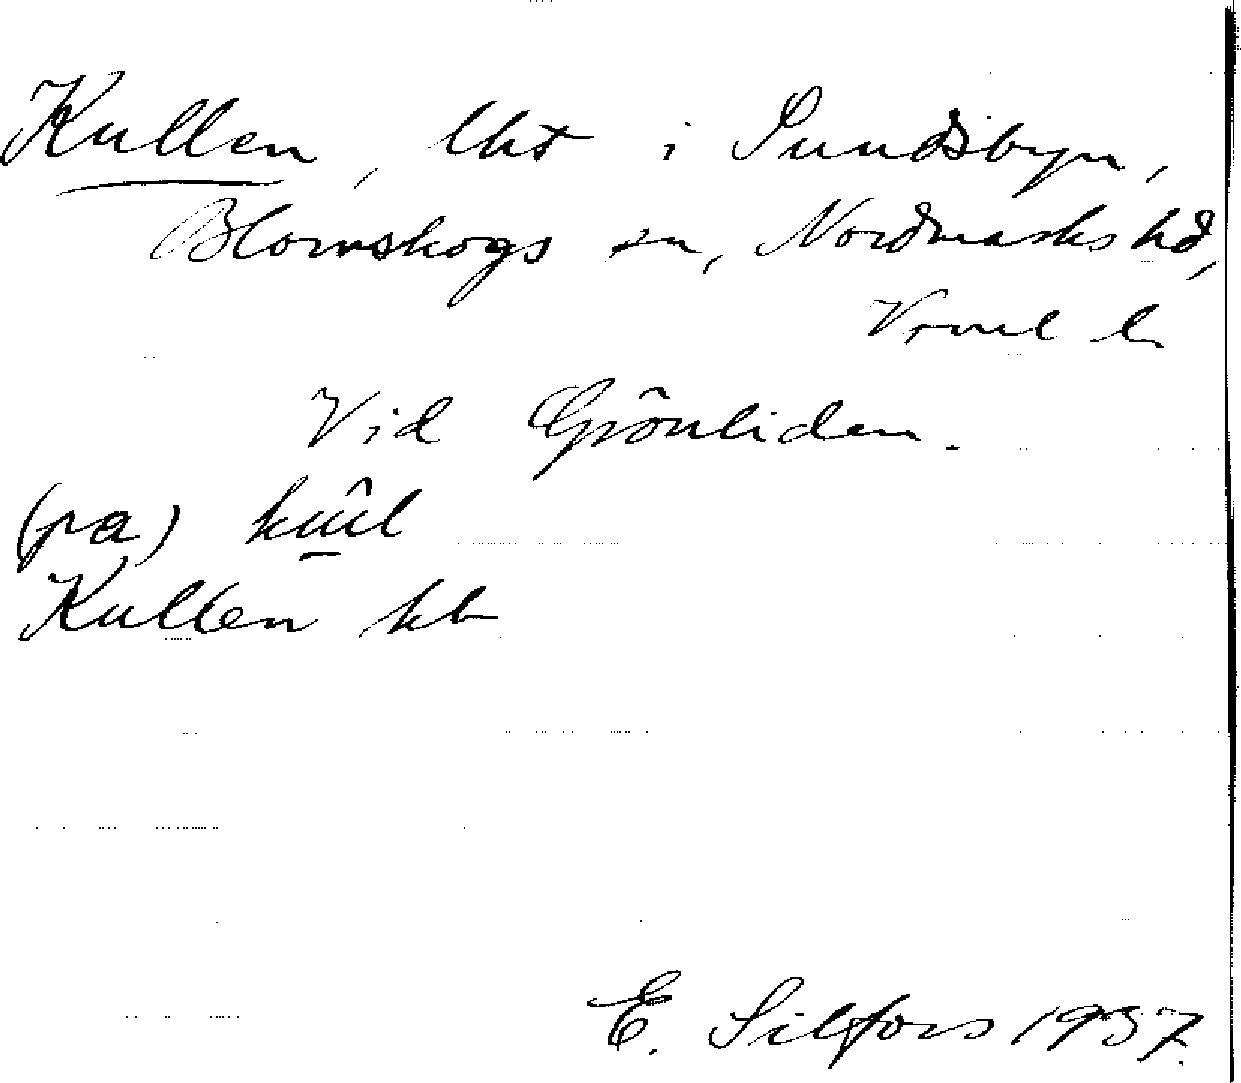 Kullen, lht i Sundsbyn,
Blomskogs sn, Nordmarks hd,
Vrml l.
Vid Grönliden.
(pa)
Kullen kb
E. Silfors 1937.